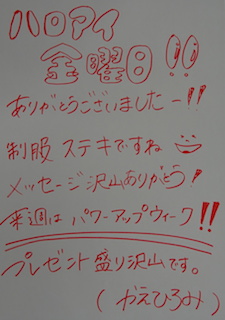 ハロアイ
金曜日!!
ありがとうございましたー!!
制服 ステキですね
メッセージ沢山ありがとう!
来週は パワーアップウィーク!!
プレゼント盛り沢山です。
(かえひろみ)